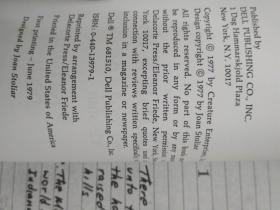 Published by
DELL PUBLISHING CO., INC.
1 Dag Hammarskjold Plaza
New York, N.Y. 10017
Copyright © 1977 by Creature Enterprises
Design copyright © 1977 by Joan Stoliar
All rights reserved. No part of this book
be reproduced in any form or by any
without the prior written permission
Delacorte Press/Eleanor Friede, New York,
York 10017, excepting brief quotes used
connection with reviews written specifically
inclusion in a magazine or newspaper.
Dell ® TM 681510, Dell Publishing Co., Inc.
ISBN: 0-440-13979-1
Reprinted by arrangement with
Delacorte Press/Eleanor Friede
Printed in the United States of America
First printing—June 1979
Designed by Joan Stoliar
1
There
unto
raised
hills
world
Indiana